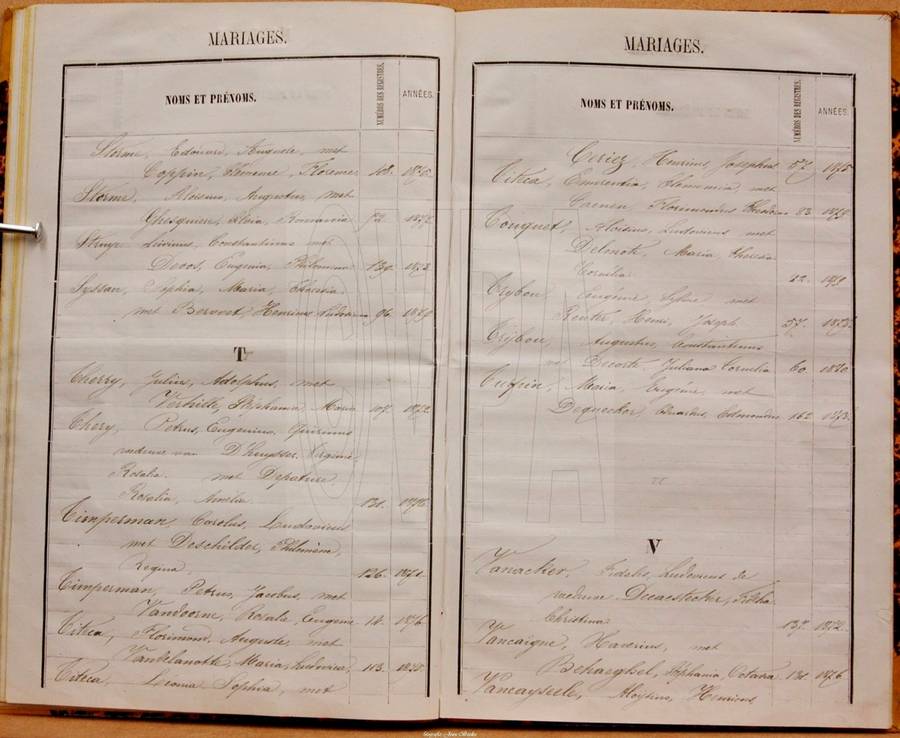 MARIAGES.
NOMS ET PRÉNOMS.
NUMÉROS DES REGISTRES.
ANNÉES.
Storme, Edouard, Auguste, met
Coppin, Clemence, Florence 108. 1875.
Storme, Aloïsius, Augustus, met
Ghesquier, Romania
Struye Livinus, Constantinus met
Devos, Eugenia, Philomena 139.
Syssau, Sophia, Maria, Theresia
met Bervoet, Henricus 96.
T
Cherry, Julius, Adolphus, met
Verhille, Stephania, Maria 107. 1872
Chery, Petrus, Eugenius, Quirinus
weduwe van D'huysser,
Rosalia. met Depature
Rosalia, Amelia 1876
Timperman, Carolus, Ludovicus
met Deschilder, Philomena,
Regina 126. 1871.
Timperman, Petrus, Jacobus, met
Vandoorne, Rosalie, Eugenie 14. 1876
Titeca, Florimond, Auguste, met
Vanbelanotte, Maria, Ludovica, 113. 1878.
Titeca, Leonia Sophia, met
MARIAGES.
NOMS ET PRÉNOMS.
NUMÉROS DES REGISTRES.
ANNÉES.
Ceriez, Henricus, Josephus 57. 1875
Titeca, Emerentia, Clemencia, met
Carnen Florimondus 83. 1879.
Touquet, Aloïsius, Ludovicus met
Delmote, Maria, Theresia
Cornelia 22.
Trybou Eugénie, Sylvie met
Reuter, Henri, Joseph 57.
Trybou, Augustus, Constantinus
met Decorte Juliana Cornelia 60.
Tuffin, Maria, Eugénie, met
Dequecker, Eduardus, Edmondus 162 1873.
V
Vanacker, Fidelis, Ludovicus de
weduwe Decaestecker,
Christina 137. 1872.
Vancaigne, Xaverius, met
Beharghel, Stephania, Octavia 131. 1876
Vancayseele, Aloysius, Henricus